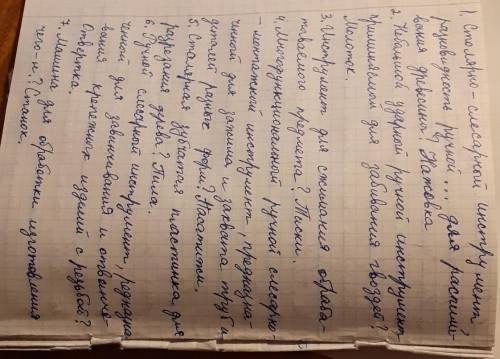 1. Столярно-слесарный инструмент,
разновидность ручной ... для распили-
вания древесины? Ножовка
2. Небольшой ударной ручной инструмент
применяемый для забивания гвоздей?
Молоток.
3. Инструмент для сжимания обраба-
тываемого предмета? Тиски.
4. Многофункциональной ручной слесарно
- монтажной инструмент, предназна-
ченной для зажима и захвата труб и
деталей разных форм? Пассатижи.
5. Стальная зубчатая пластинка для
разрезания дерева? Пила.
6. Ручной слесарной инструмент, предназна-
ченной для завинчивания и отвинчи-
вания крепежных изделий с резьбой?
Отвертка.
7. Машина для обработки изготовления
чего-н.? Станок.